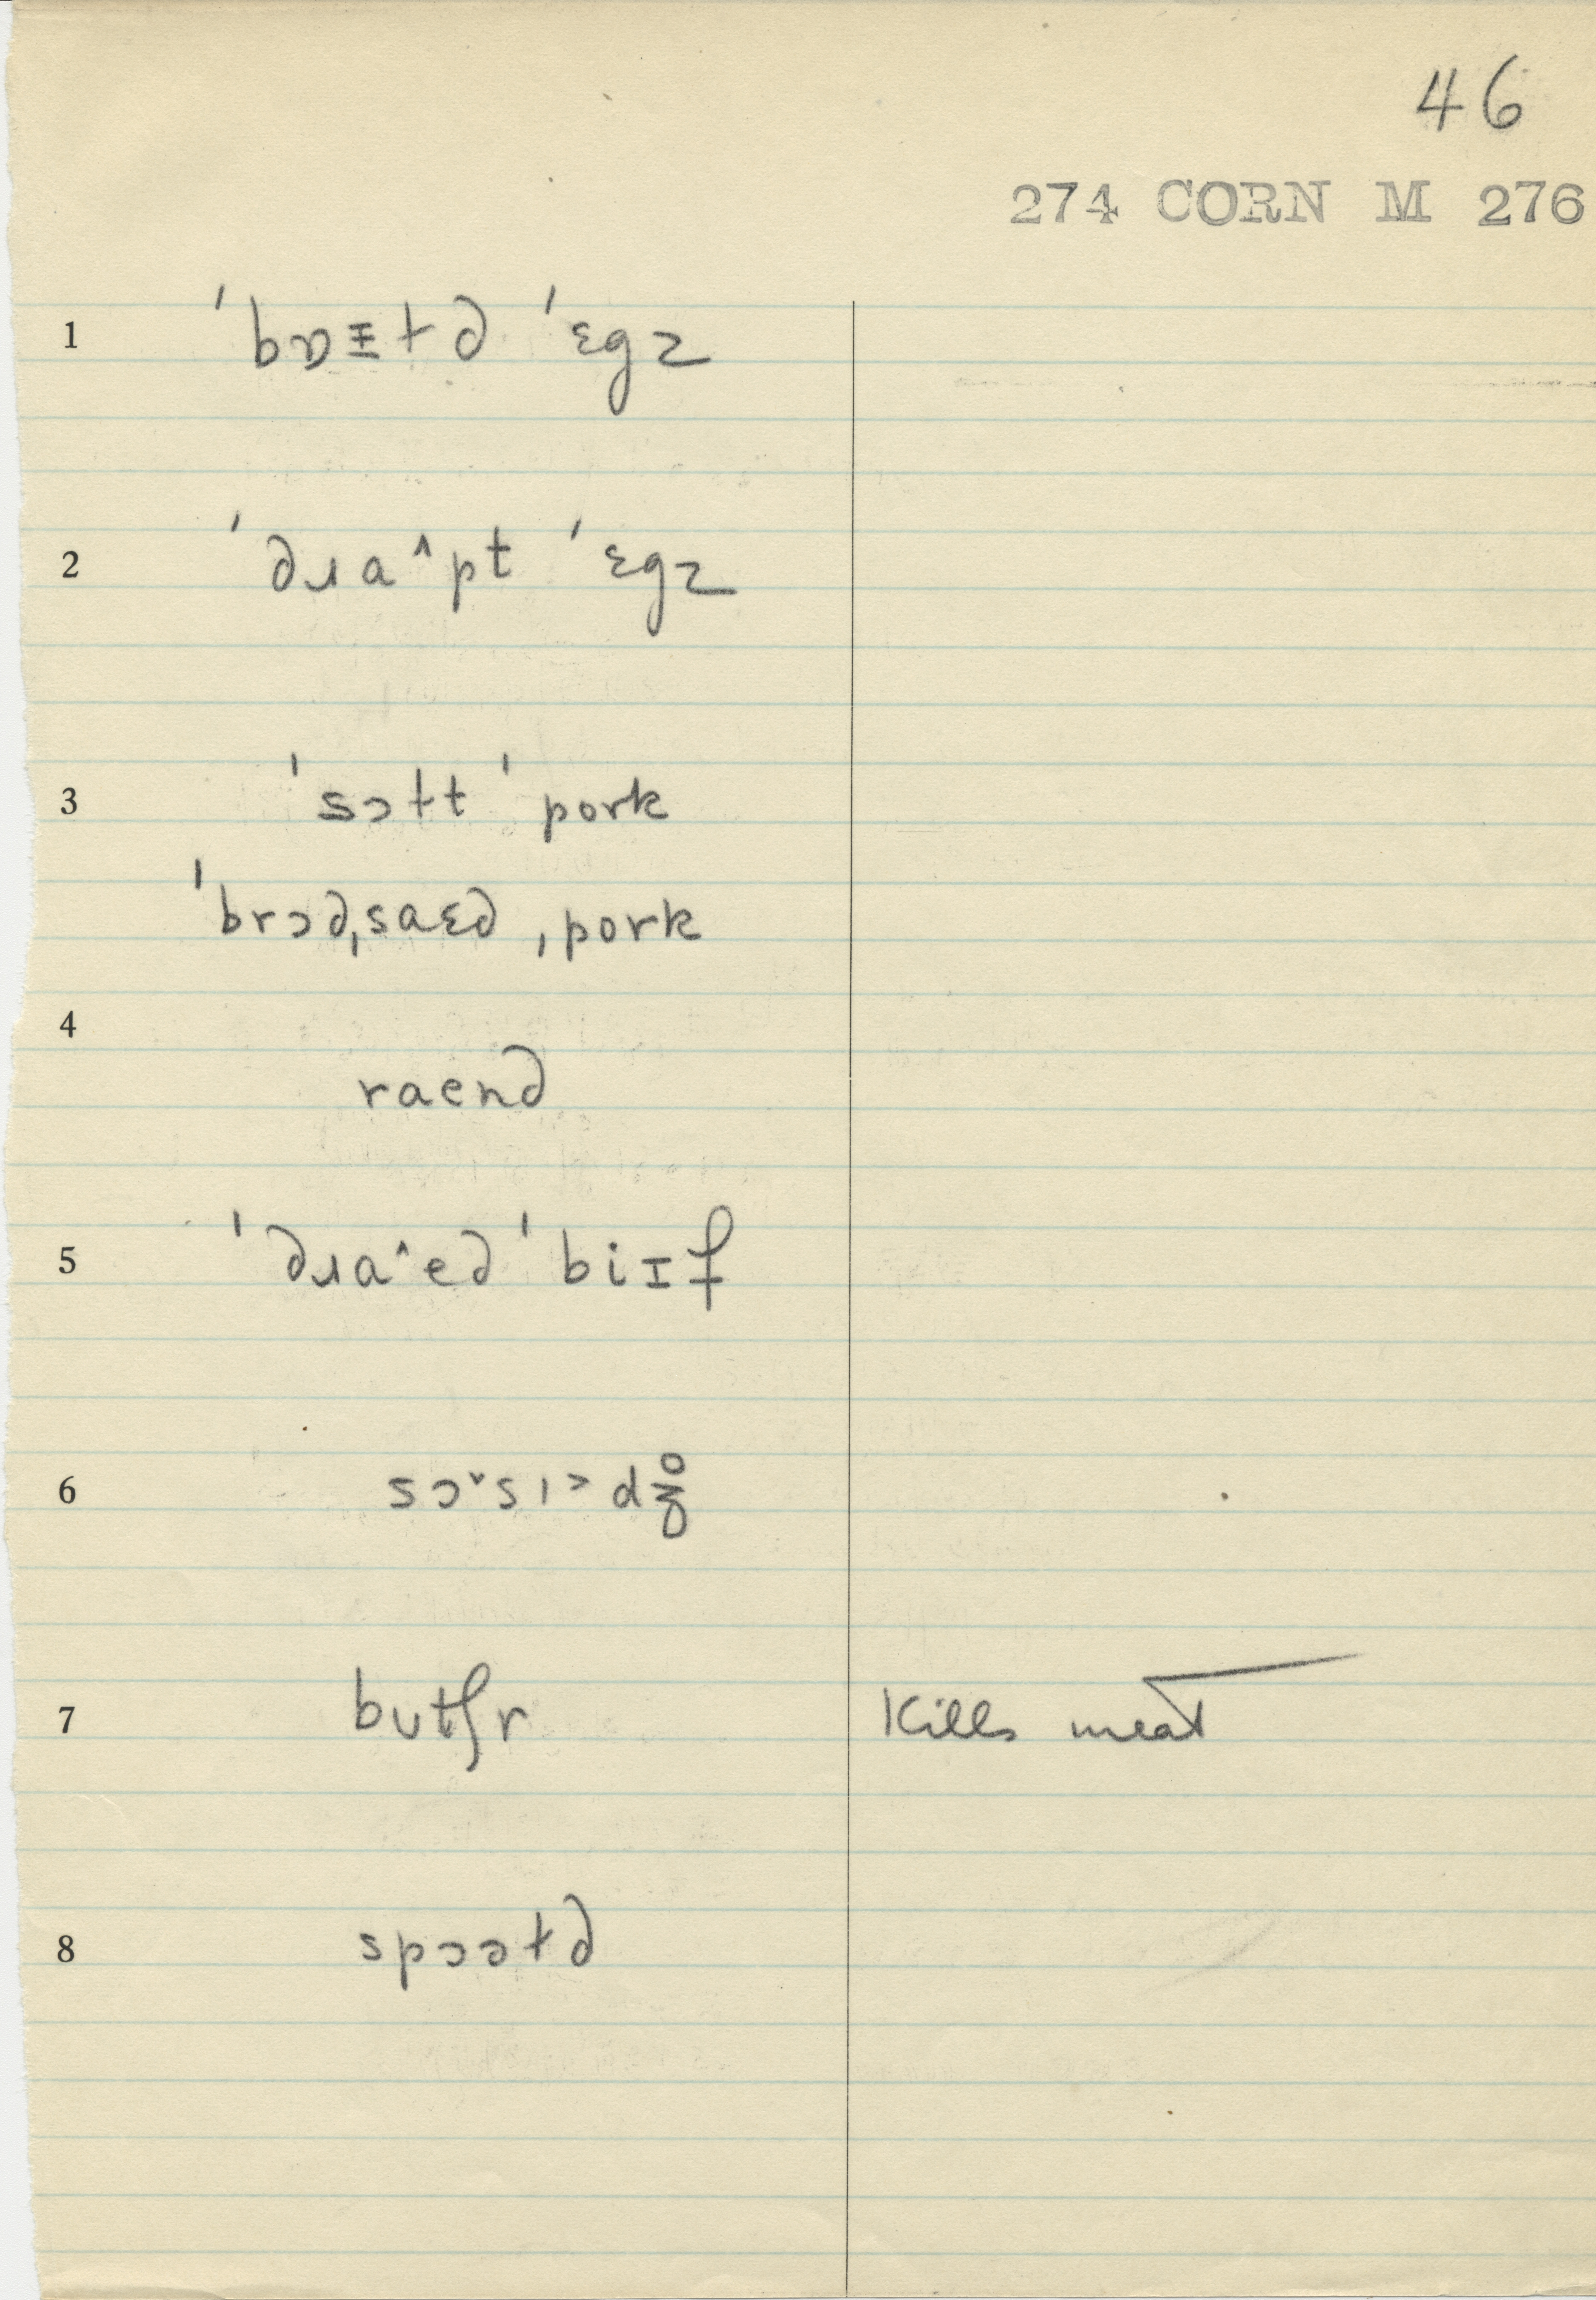 46
274 CORN M 276
1 ˈbɒɪɫd ˈɛgz
2 ˈdɹa^pt ˈɛgz
3 ˈsɔɫt ˈpork
ˈbrɔdˌsaɛd ˌpork
4
raend
5 ˈdɹa^ed ˈbiɪf
6 sɔˇsɪ˃dʒ̊
7 butʃr Kills meat
8 spɔəɫd